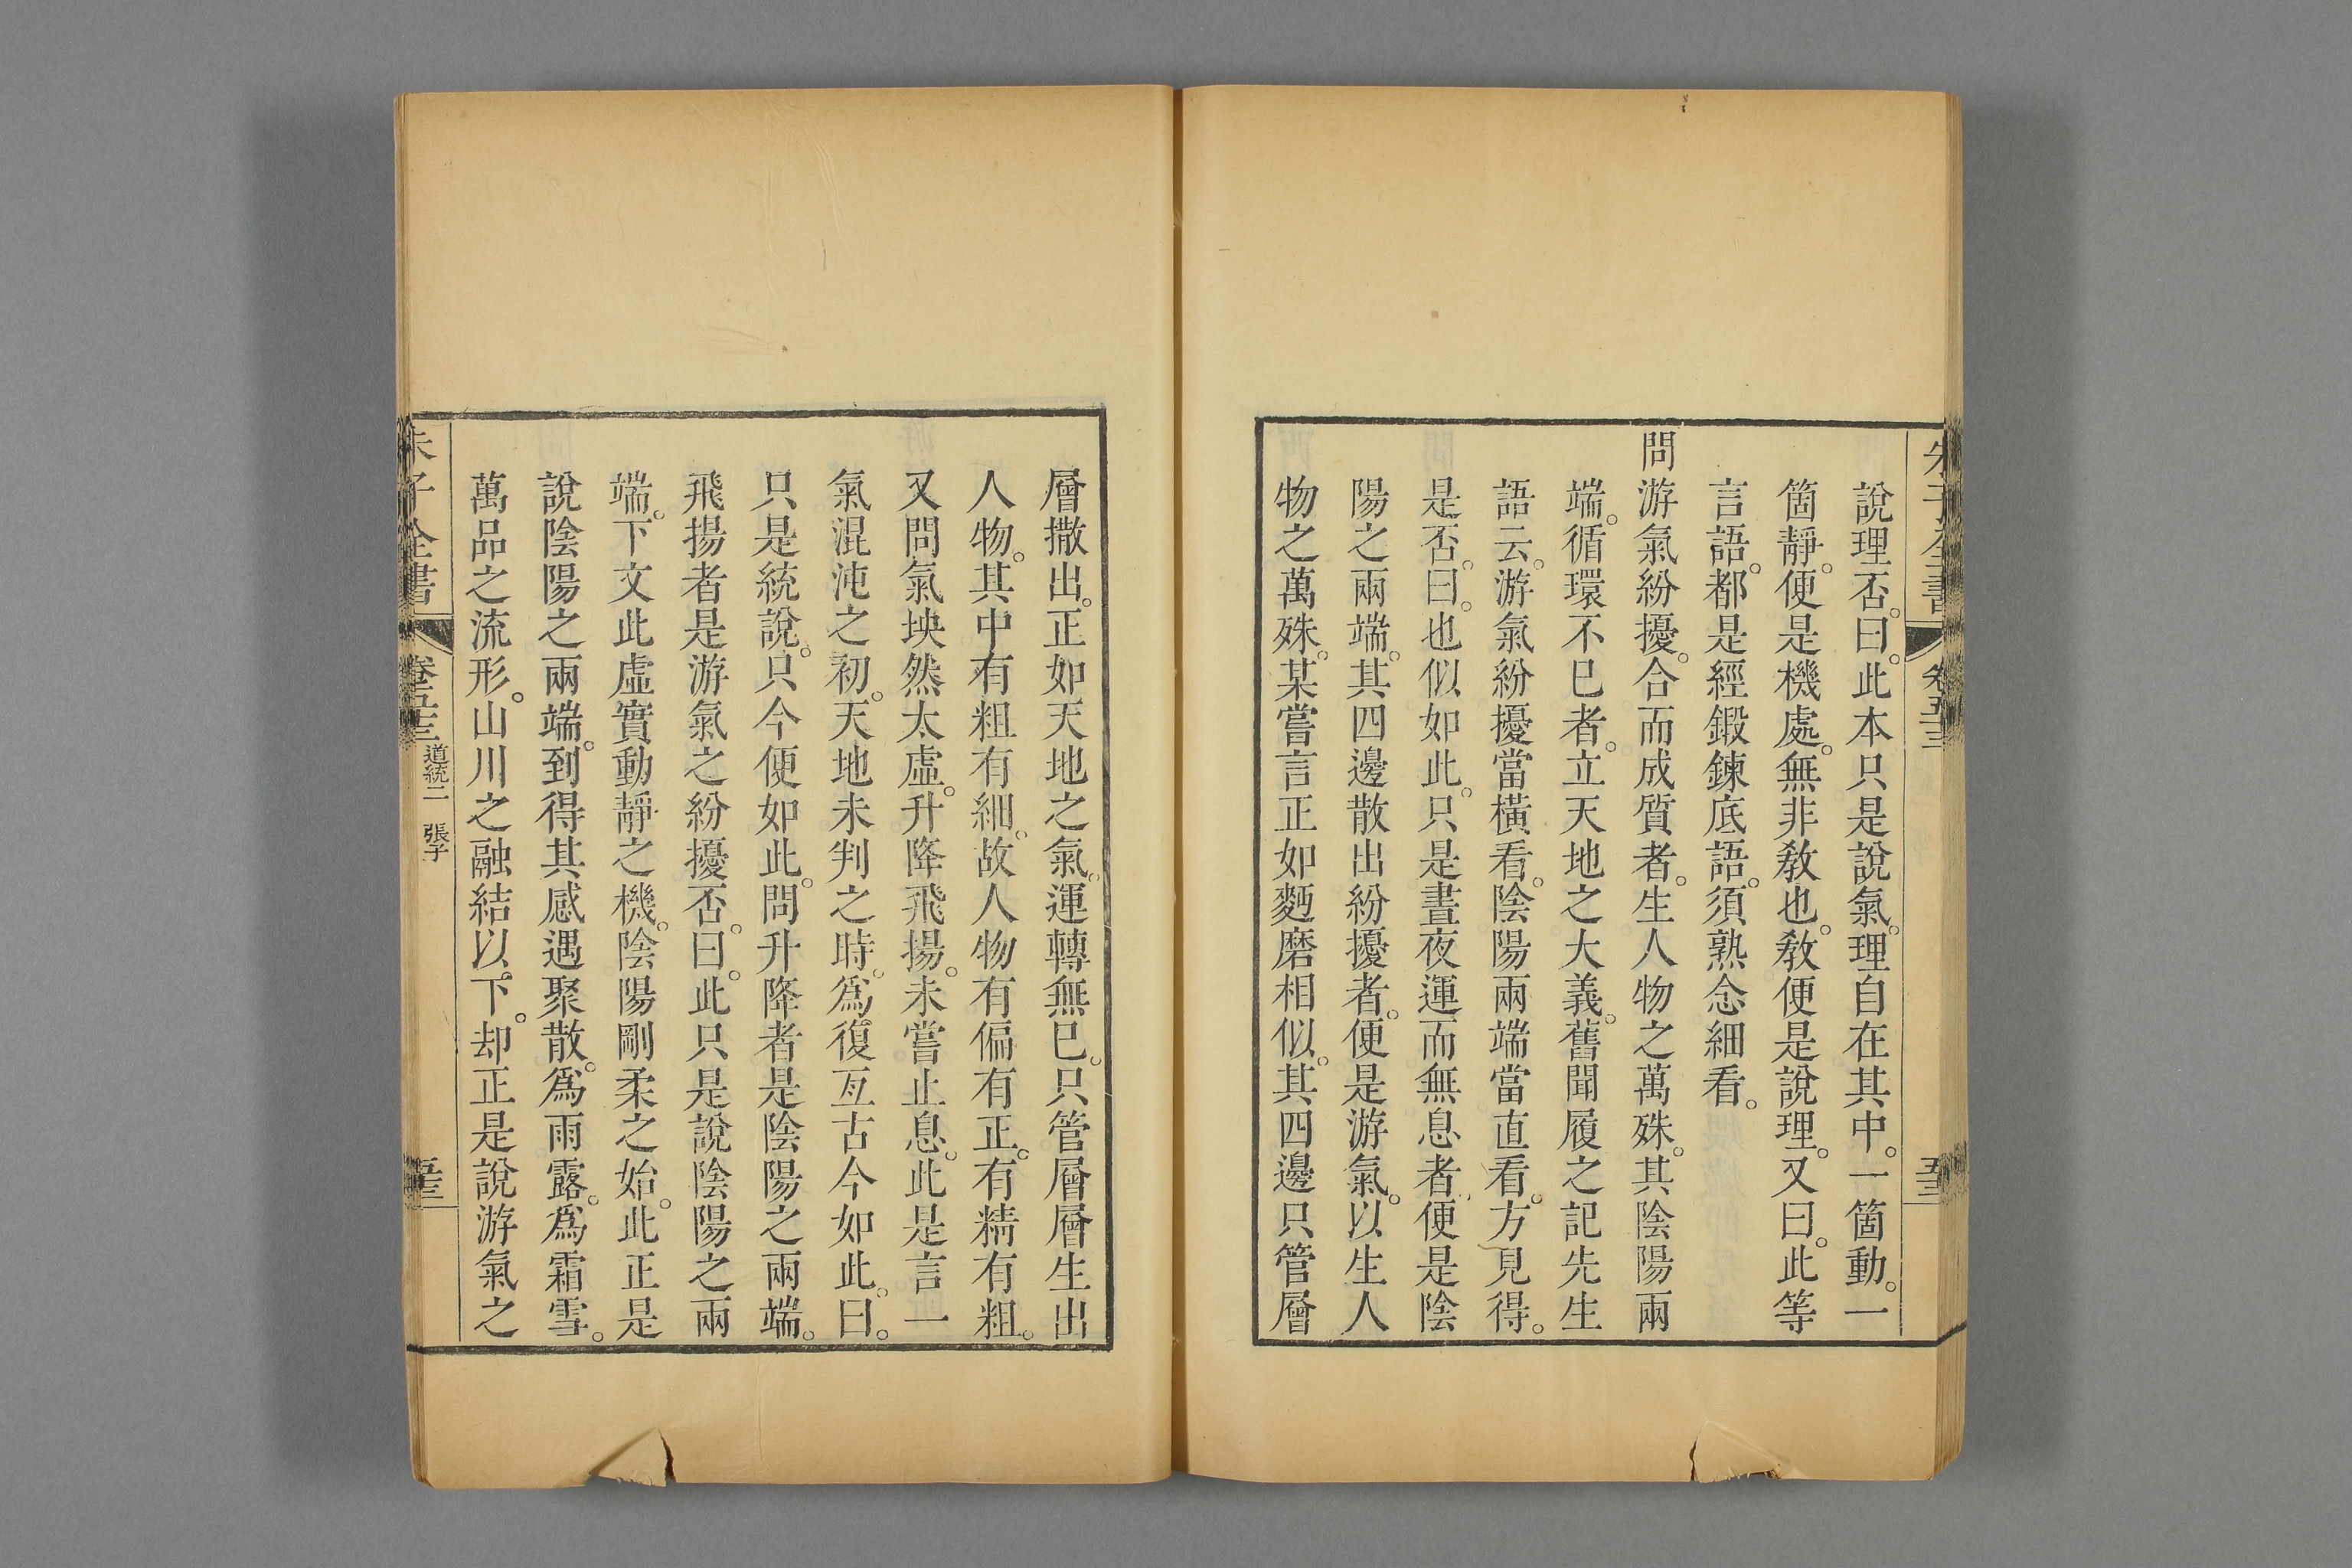 朱子全書
卷五十三
五十三
說理否。曰。此本只是說氣。理自在其中。一箇動。一
箇靜。便是機處。無非教也。教便是說理。又曰。此等
言語。都是經鍛鍊底語。須熟念細看。
問游氣紛擾。合而成質者。生人物之萬殊。其陰陽兩
端。循環不已者。立天地之大義。舊聞履之記先生
語云。游氣紛擾當橫看。陰陽兩端當直看。方見得。
是否。曰。也似如此。只是晝夜運而無息者。便是陰
陽之兩端。其四邊散出紛擾者。便是游氣。以生人
物之萬殊。某嘗言正如麪磨相似。其四邊只管層
層撒出。正如天地之氣。運轉無已。只管層層生出
人物。其中有粗有細。故人物有偏有正。有精有粗。
又問氣坱然太虛。升降飛揚。未嘗止息。此是言一
氣混沌之初。天地未判之時。爲復亙古今如此。曰。
只是統說。只今便如此。問升降者是陰陽之兩端。
飛揚者是游氣之紛擾否。曰。此只是說陰陽之兩
端。下文此虛實動靜之機。陰陽剛柔之始。此正是
說陰陽之兩端。到得其感遇聚散。爲雨露。爲霜雪。
萬品之流形。山川之融結以。下。却正是說游氣之
朱子全書
卷五十三
道統二 張子
五十三